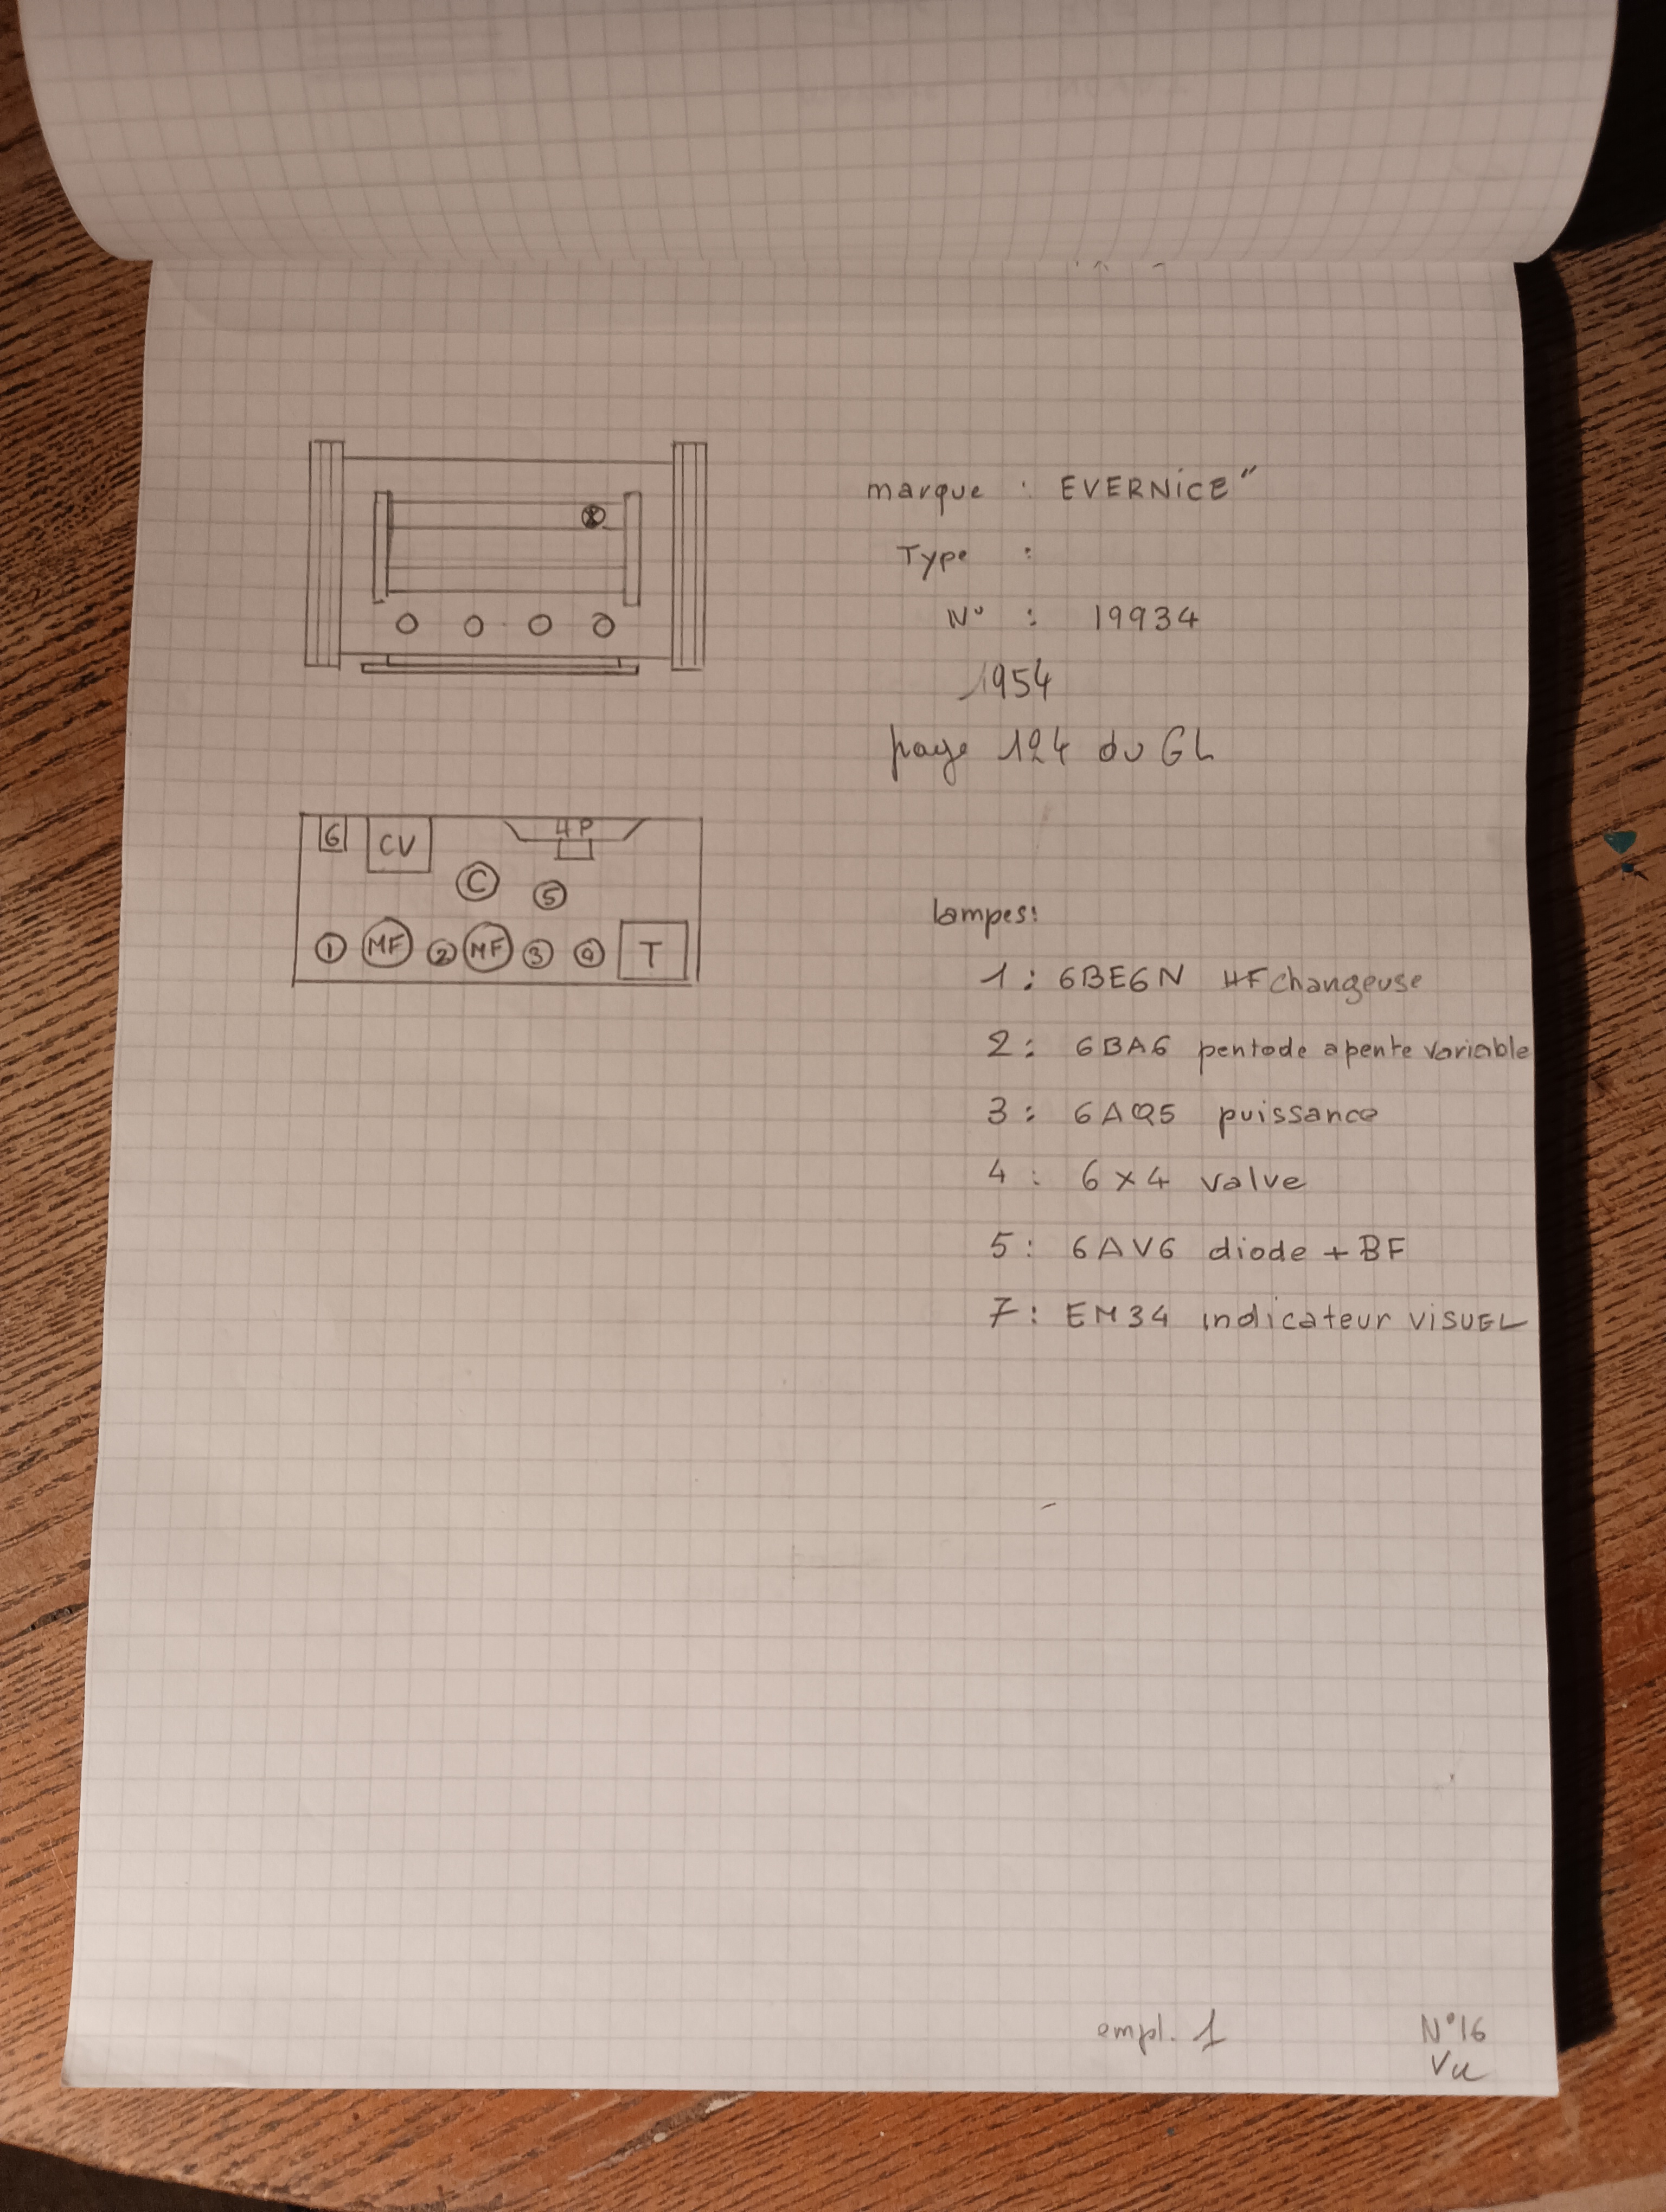 marque : EVERNICE"
Type :
N° : 19934
1954
page 124 du GL
6 CV HP
C 5
1 MF 2 MF 3 4 T
lampes:
1 : 6BE6N HF changeuse
2 : 6BA6 pentode a pente variable
3 : 6AQ5 puissance
4 : 6x4 valve
5 : 6AV6 diode + BF
7 : EM34 indicateur VISUEL
empl. 1
N°16
Vu